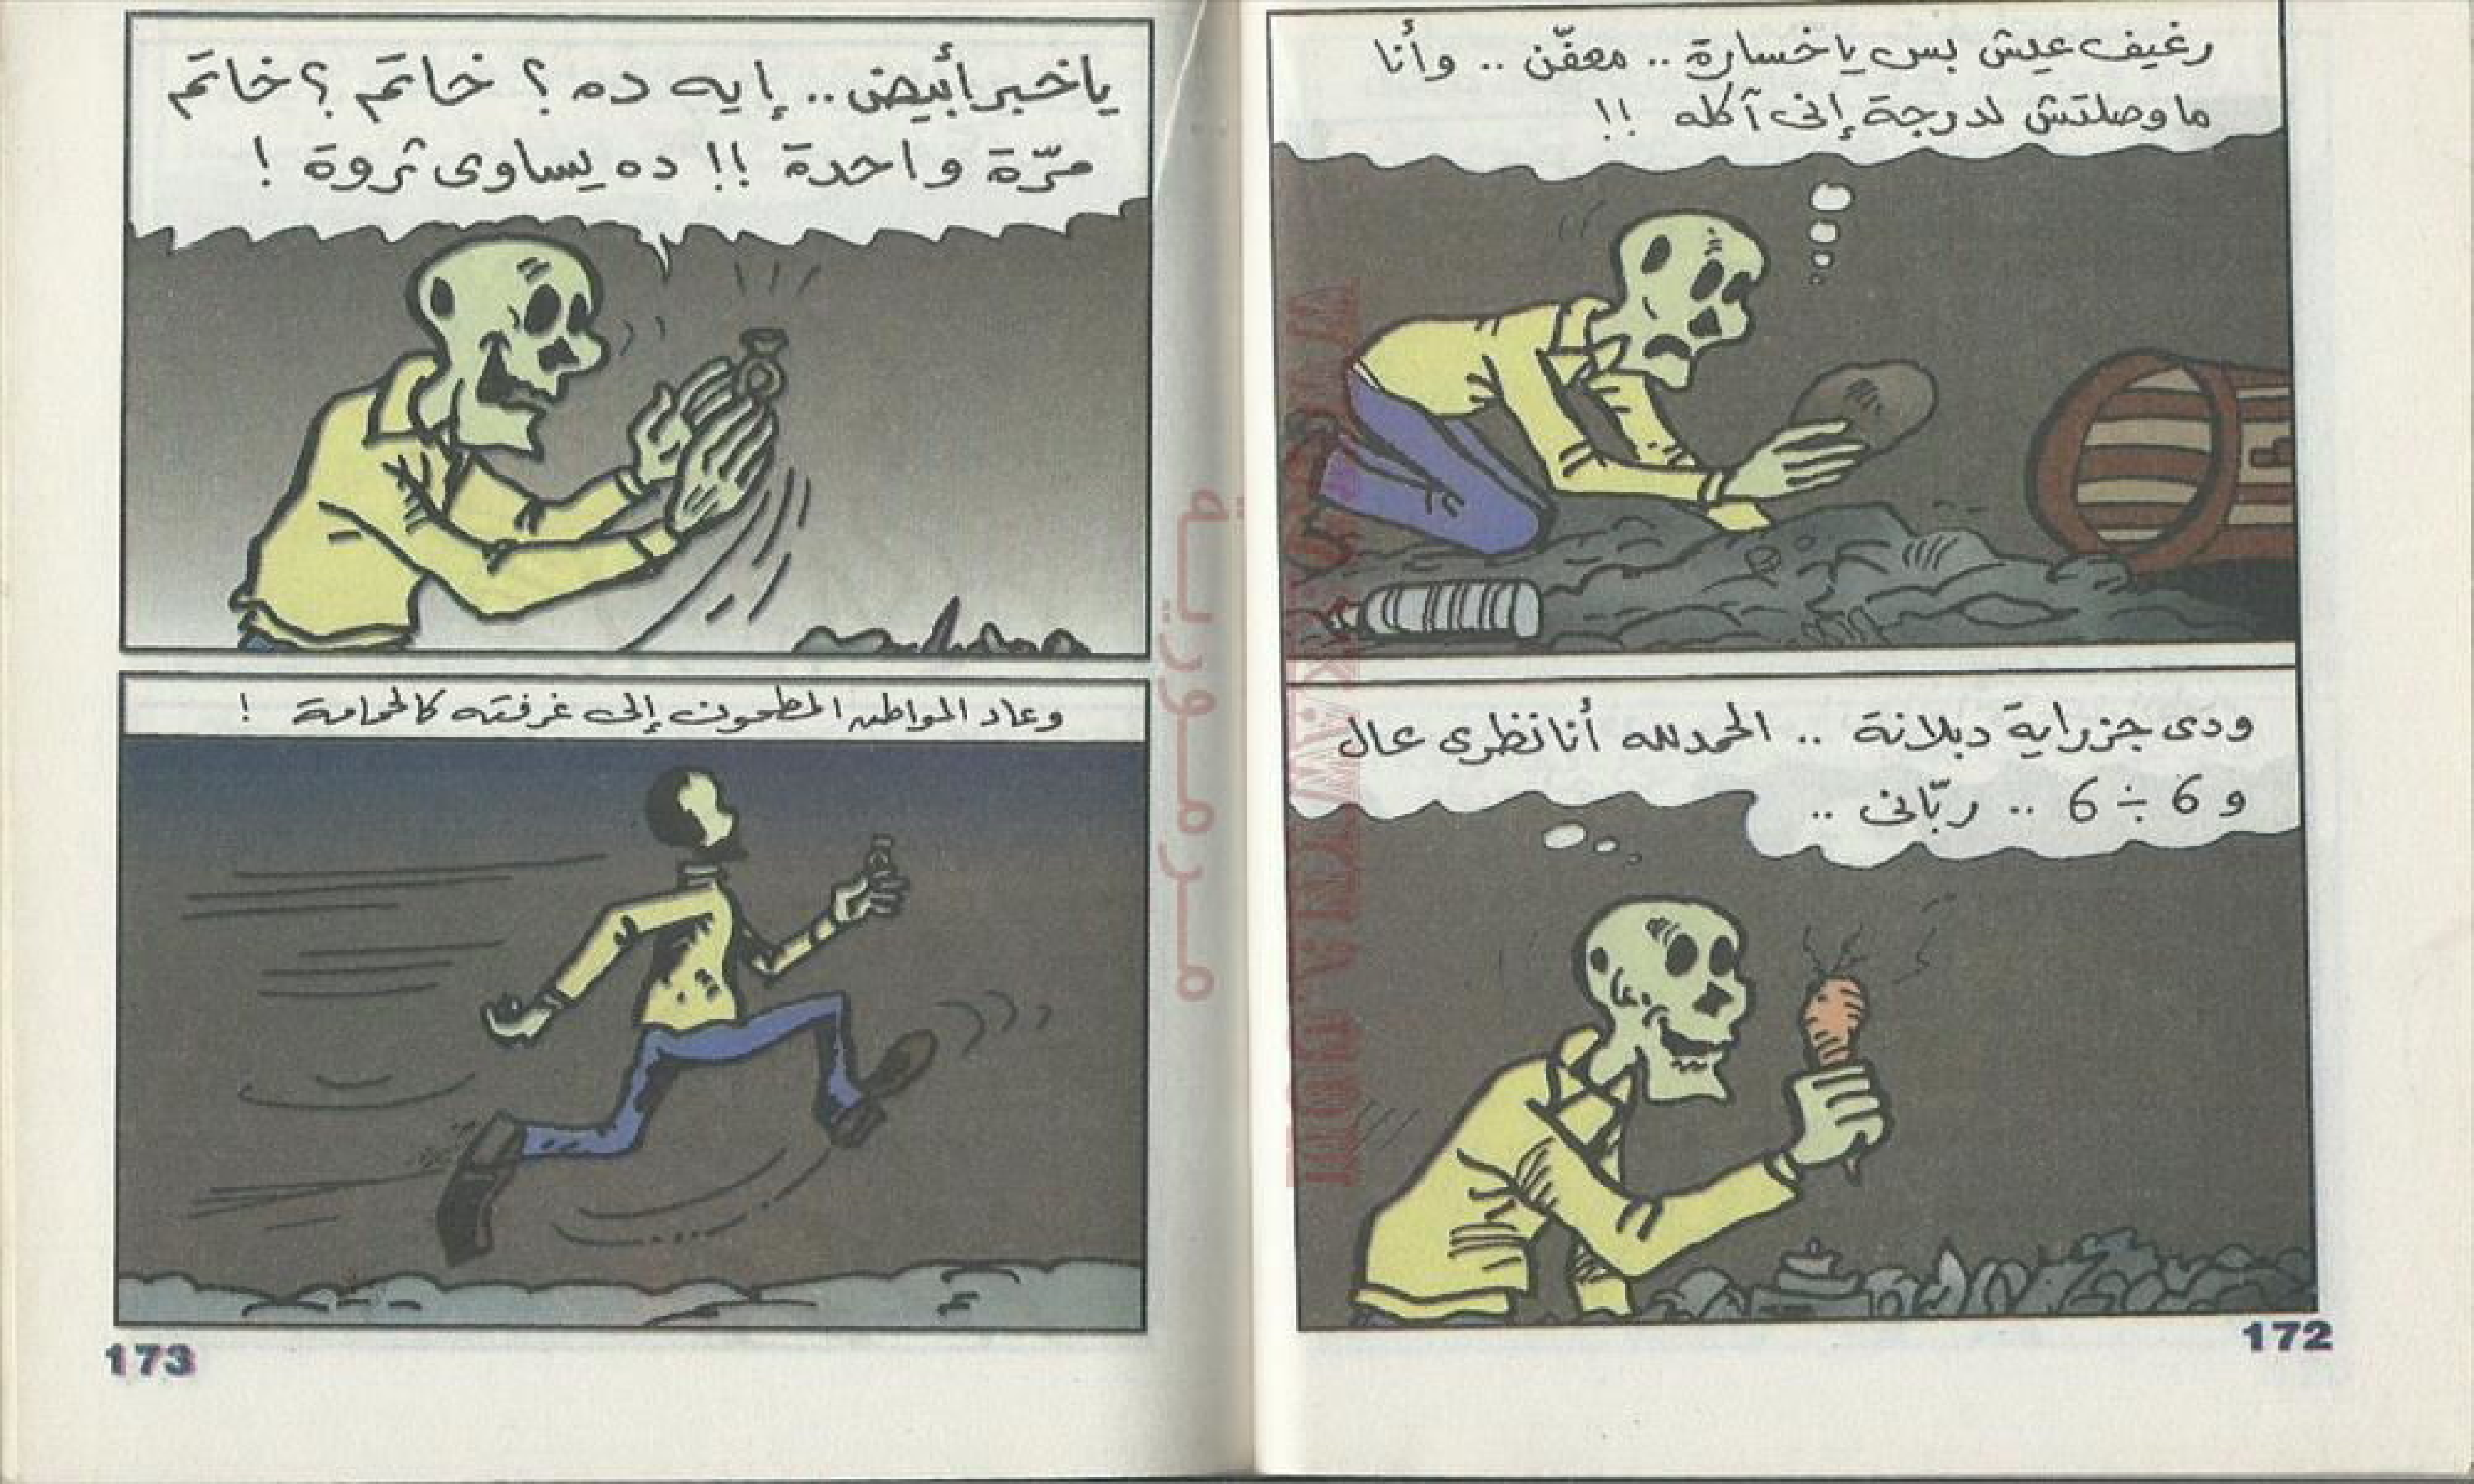 رغيف عيش بس يا خسارة .. معفّن .. وأنا
ما وصلتش لدرجة إنى آكله !!
ودى جزراية دبلانة .. الحمد لله أنا نظرى عال
و 6 ÷ 6 .. ربّانى ..
172
يا خبر أبيض .. إيه ده ؟ خاتم ؟ خاتم
مرّة واحدة !! ده يساوى ثروة !
وعاد المواطن المطحون إلى غرفته كالحمامة !
173
مرمورية